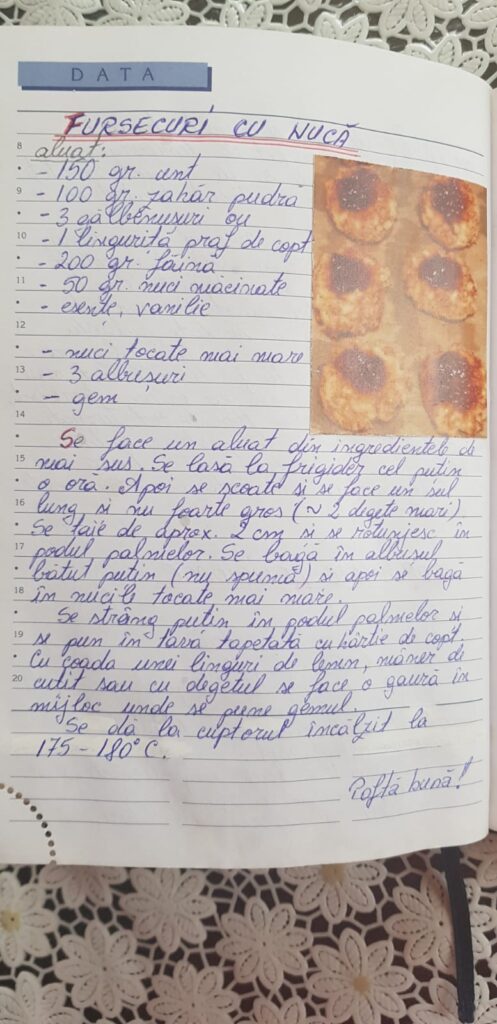 DATA
FURSECURI CU NUCĂ
8
aluat:
- 150 gr. unt
9
- 100 gr. zahăr pudră
- 3 gălbenușuri ou
10
- 1 linguriță praf de copt
- 200 gr. făină
11
- 50 gr. nuci măcinate
- esențe, vanilie
12
- nuci tocate mai mare
13
- 3 albușuri
- gem
14
Se face un aluat din ingredientele de
15
mai sus. Se lasă la frigider cel puțin
o oră. Apoi se scoate și se face un sul
16
lung și nu foarte gros (~ 2 degete mari).
Se taie de aprox. 2 cm și se rotunjesc în
17
podul palmelor. Se bagă în albușul
bătut puțin (nu spumă) și apoi se bagă
18
în nucile tocate mai mare.
Se strâng puțin în podul palmelor și
19
se pun în tavă tapetată cu hârtie de copt.
Cu coada unei linguri de lemn, mâner de
20
cuțit sau cu degetul se face o gaură în
mijloc unde se pune gemul.
Se dă la cuptorul încălzit la
175 - 180° C.
Poftă bună!